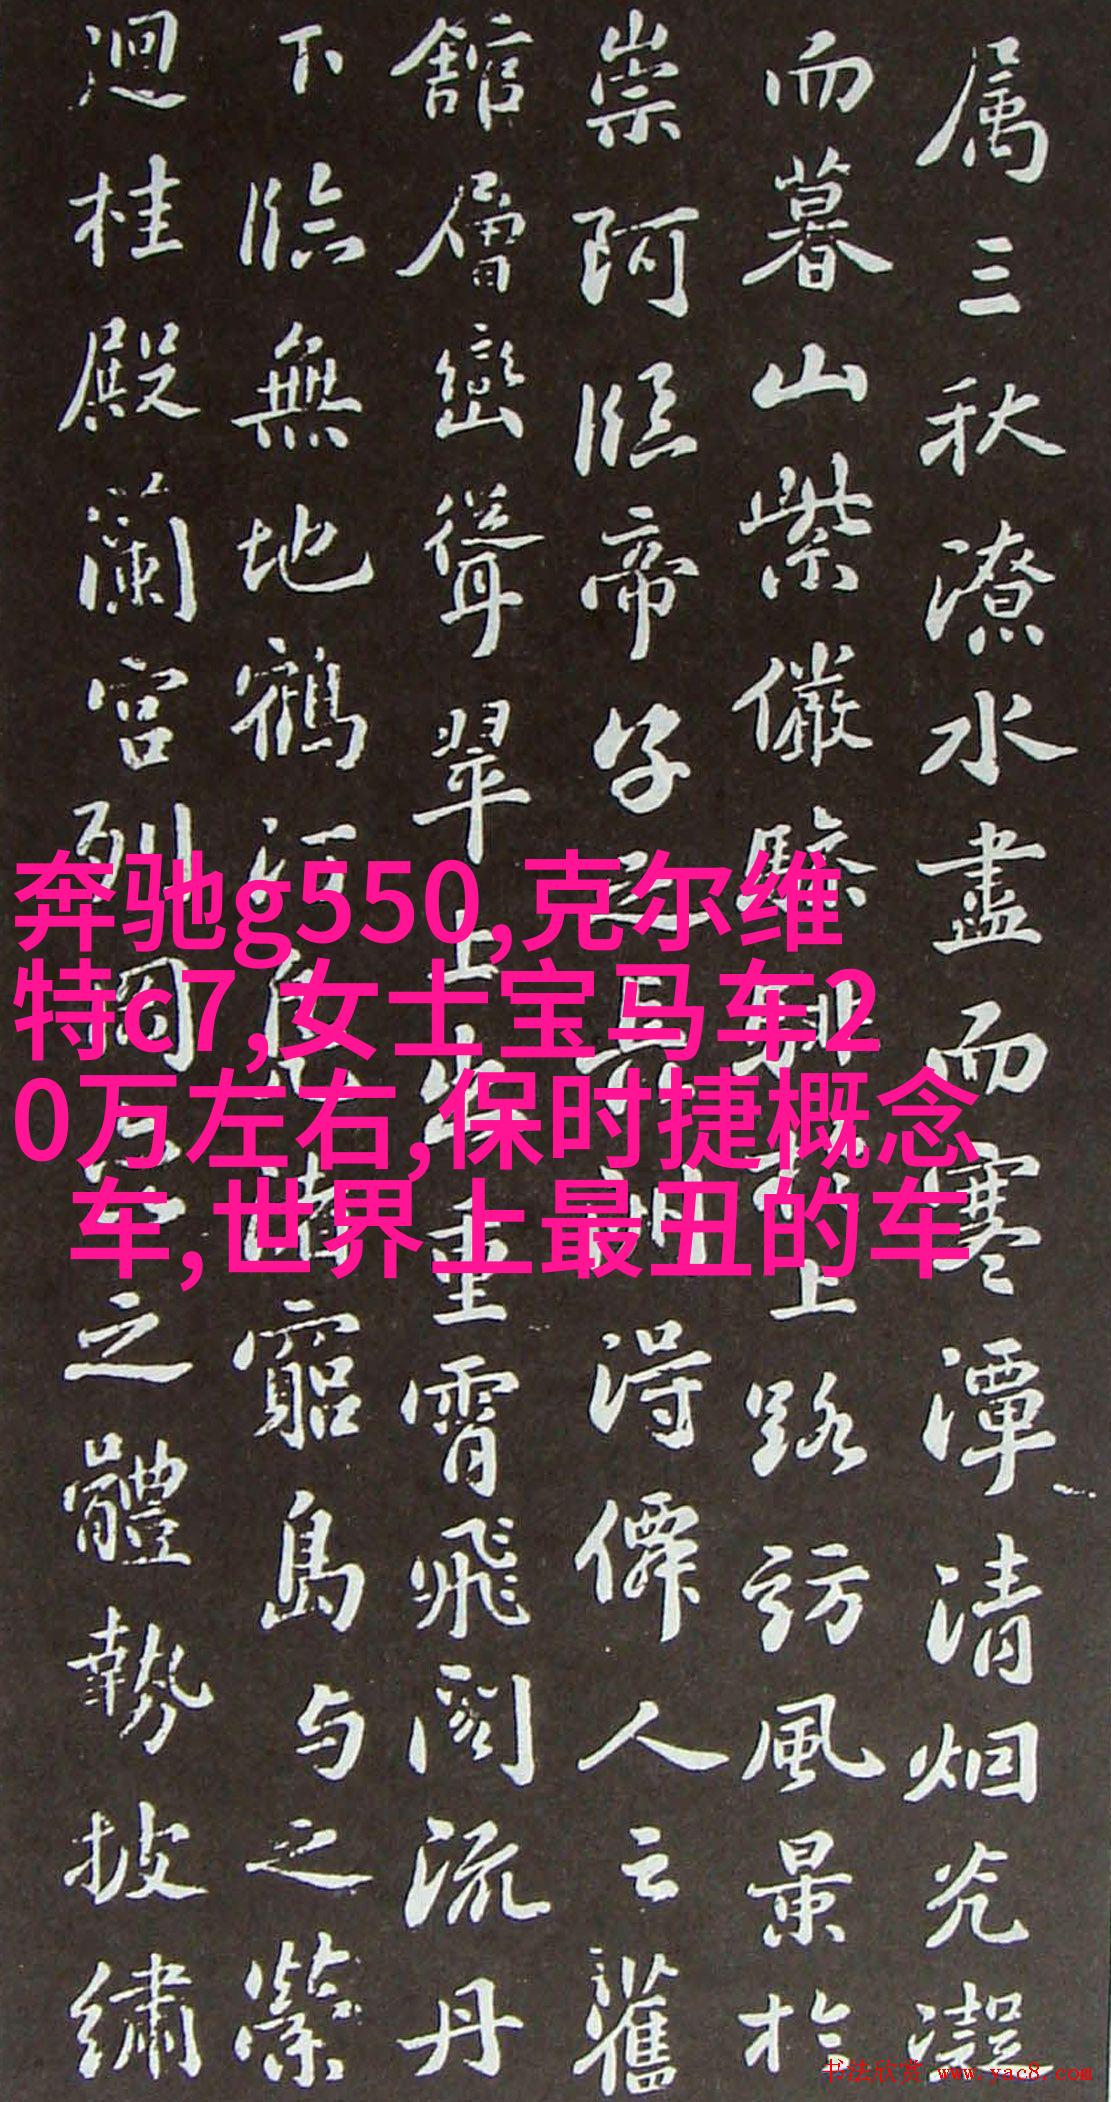 属三秋潦水盡而寒潭清烟光凝
而暮山紫儼驂騑於上路訪風景於
崇阿臨帝子之長洲得僊人之舊
舘層巒聳翠上出重霄飛閣流丹
下臨無地鶴汀鳧渚窮島与之縈
迴桂殿蘭宫列岡巒之體勢披繡
奔驰g550,克尔维
特c7,女士宝马车2
0万左右,保时捷概念
车,世界上最丑的车
书法欣赏 www.yac8.com